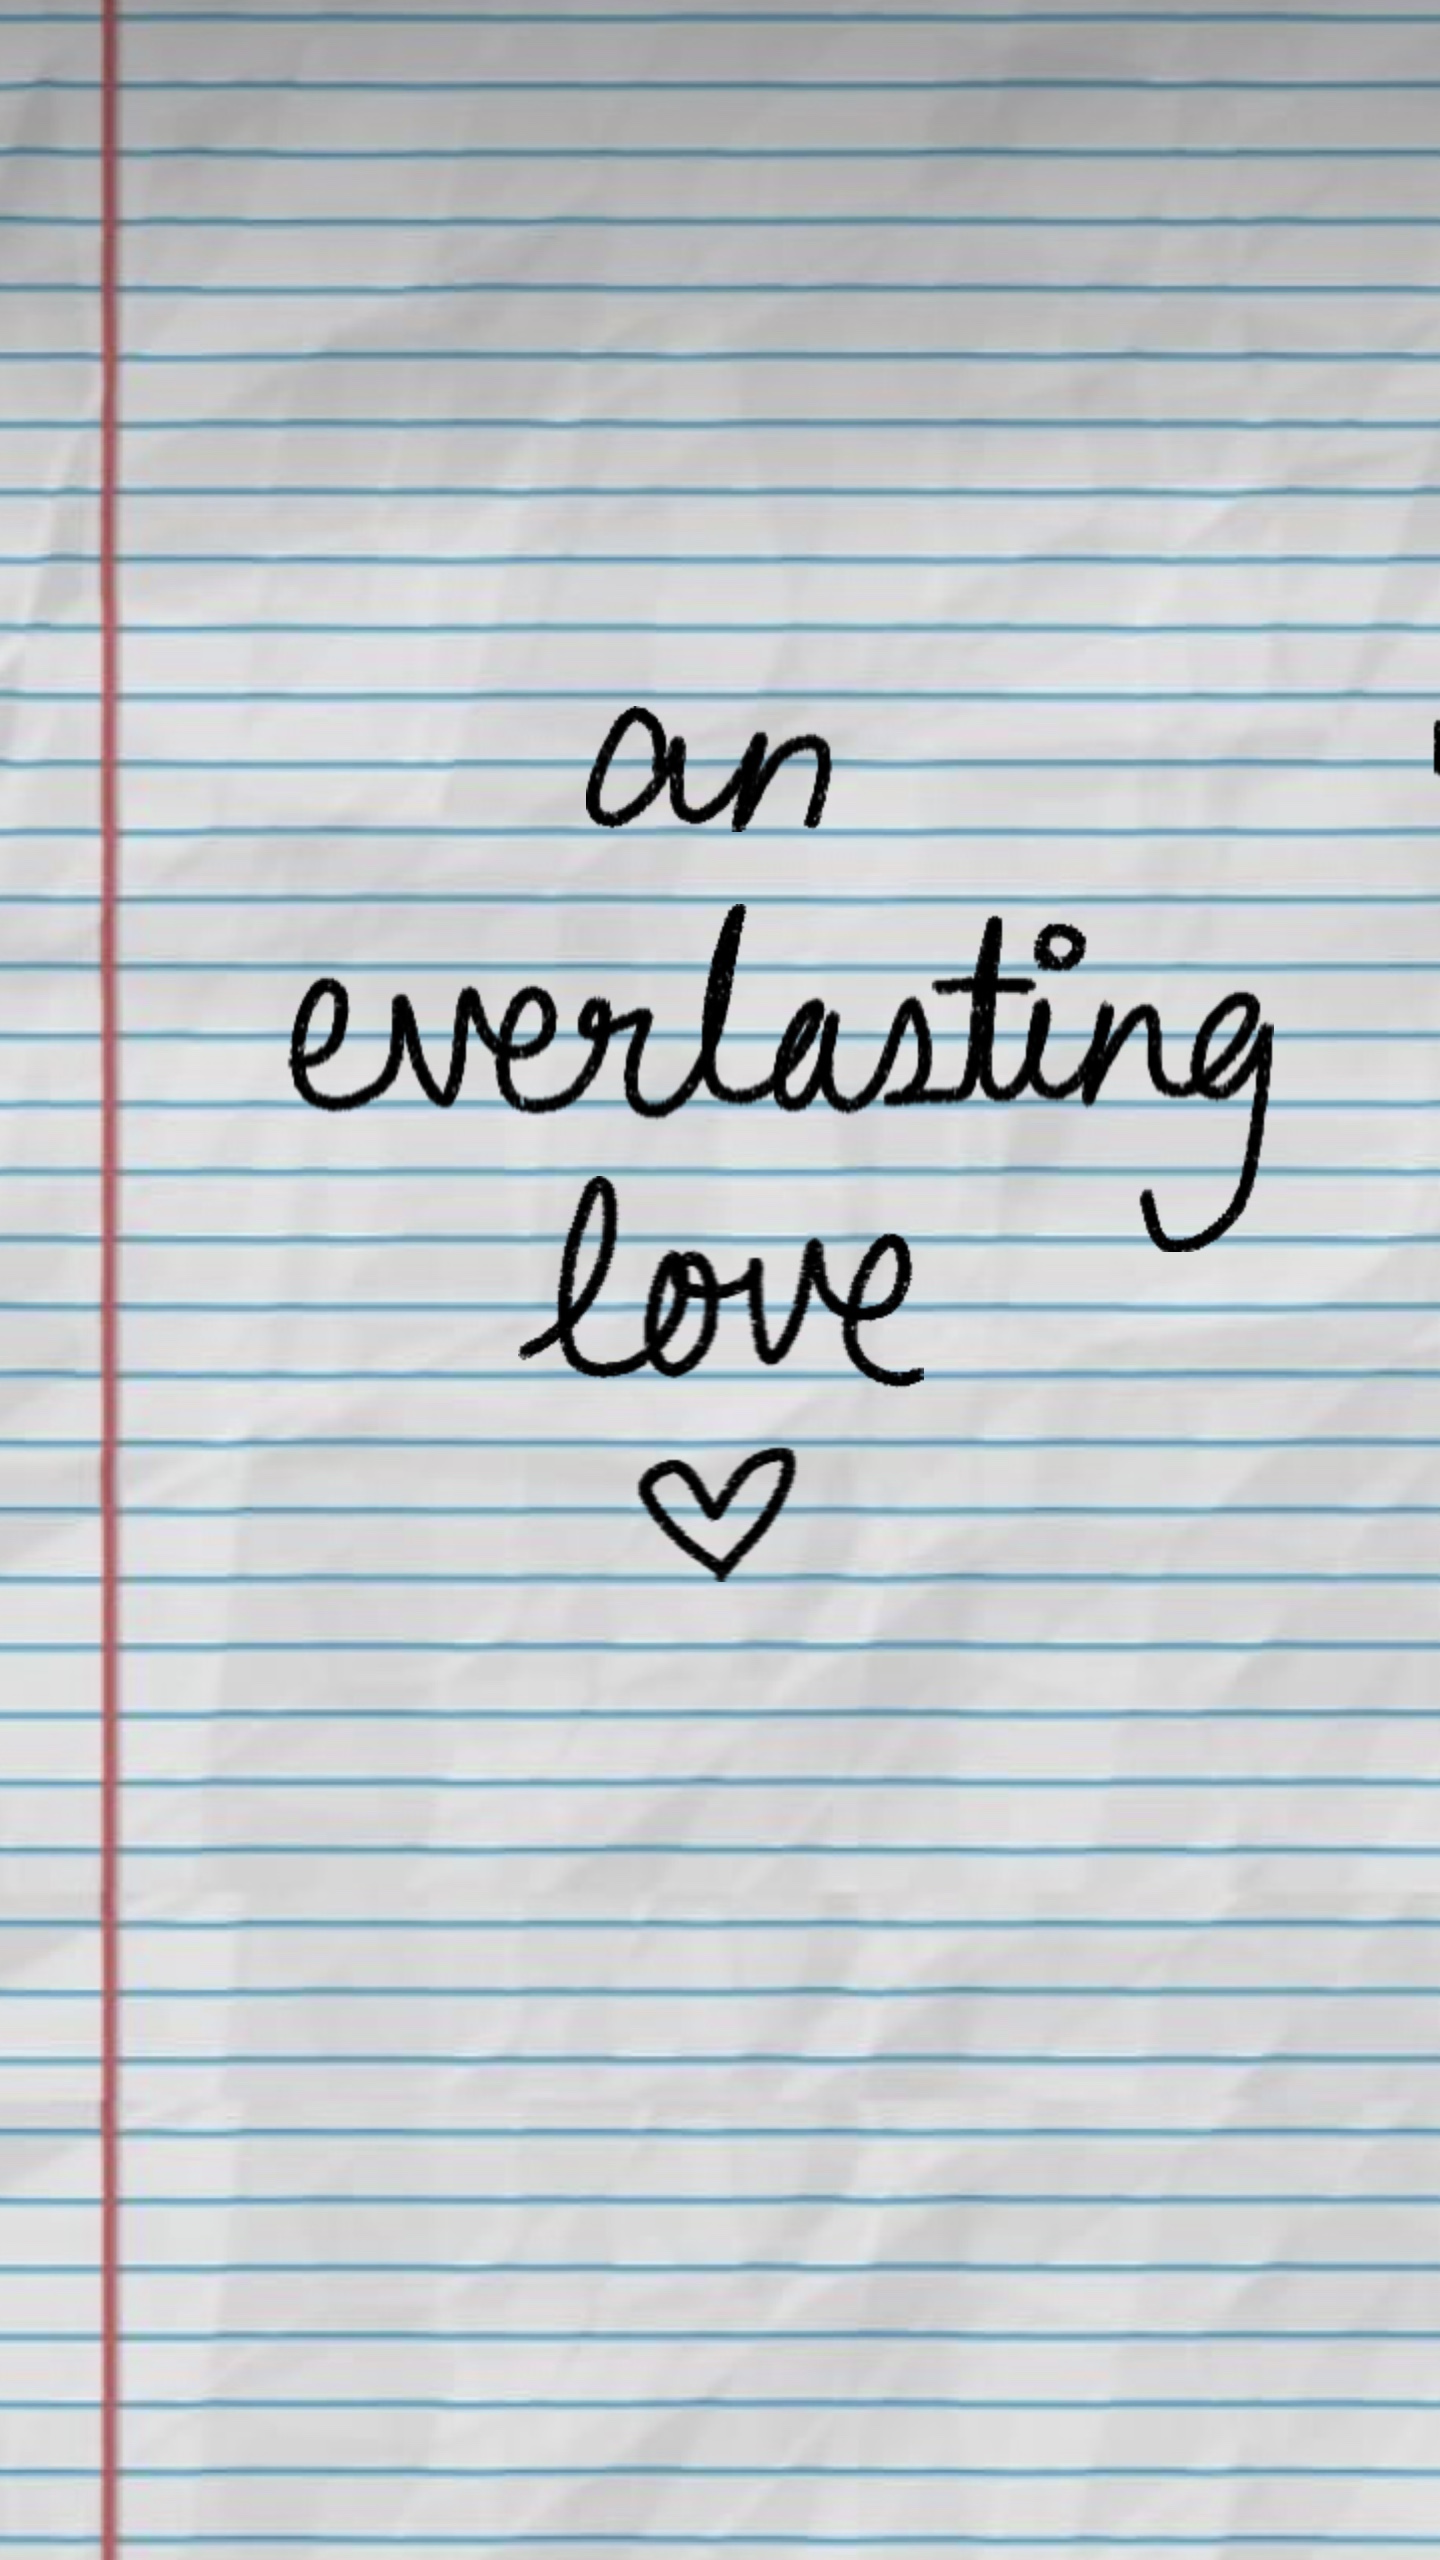 an
everlasting
love
♡